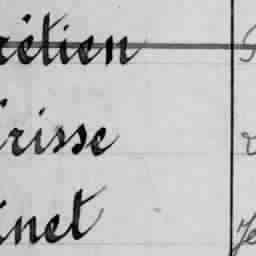 rétien
risse
inet